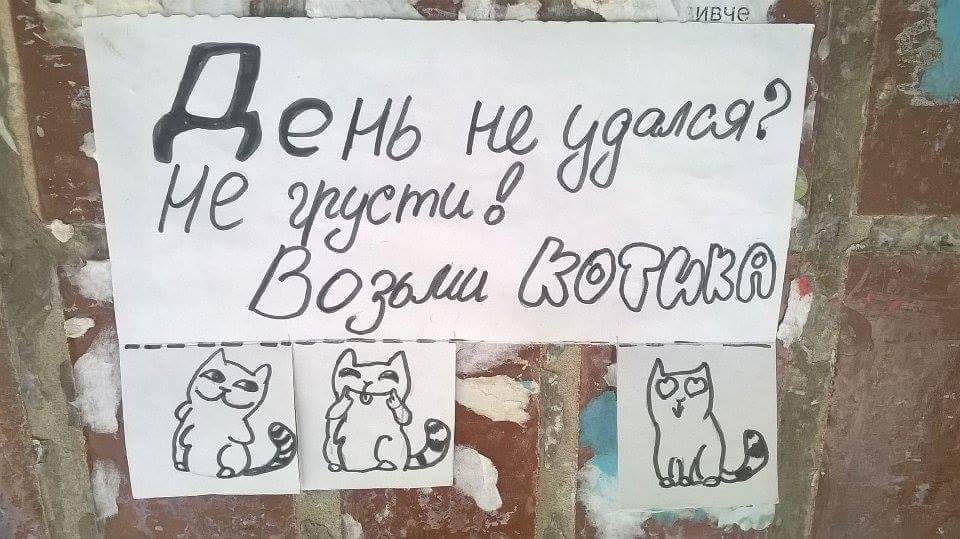 ивче
День не удался?
Не грусти!
Возьми КОТИКА